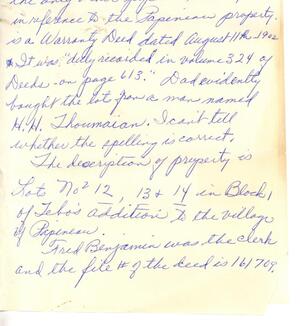 the only
in reference to the Papineau property.
is a Warranty Deed dated August 11th 1902
It was, "duly recorded in volume 324 of
Deeds - on page 613." Dad evidently
bought the lot from a man named
H. H. Thoumaian. I can't tell
whether the spelling is correct.
The description of property is
Lots Nos 12, 13 & 14 in Block 1
of Tebo's addition to the village
of Papineau.
Fred Benjamin was the clerk
and the file # of the deed is 161709.